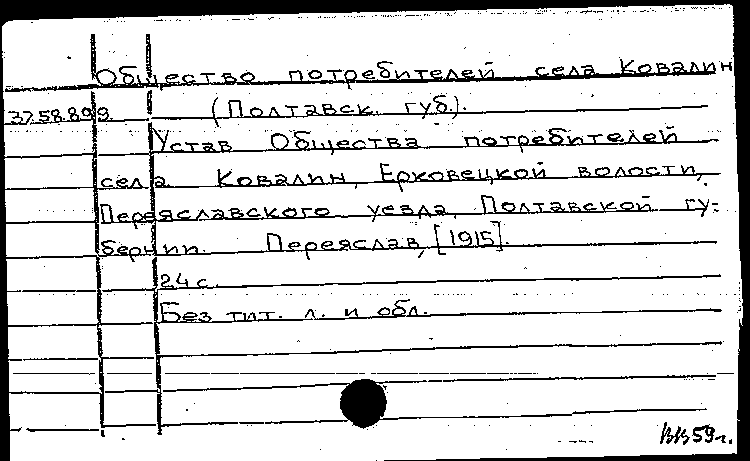 Общество потребителей села Ковалин
37.58.899. (Полтавск. губ.).
Устав Общества потребителей
села Ковалин, Ерковецкой волости,
Переяславского уезда, Полтавской гу-
бернии. Переяслав, [1915].
24 с.
Без тит. л. и обл.
59 г.